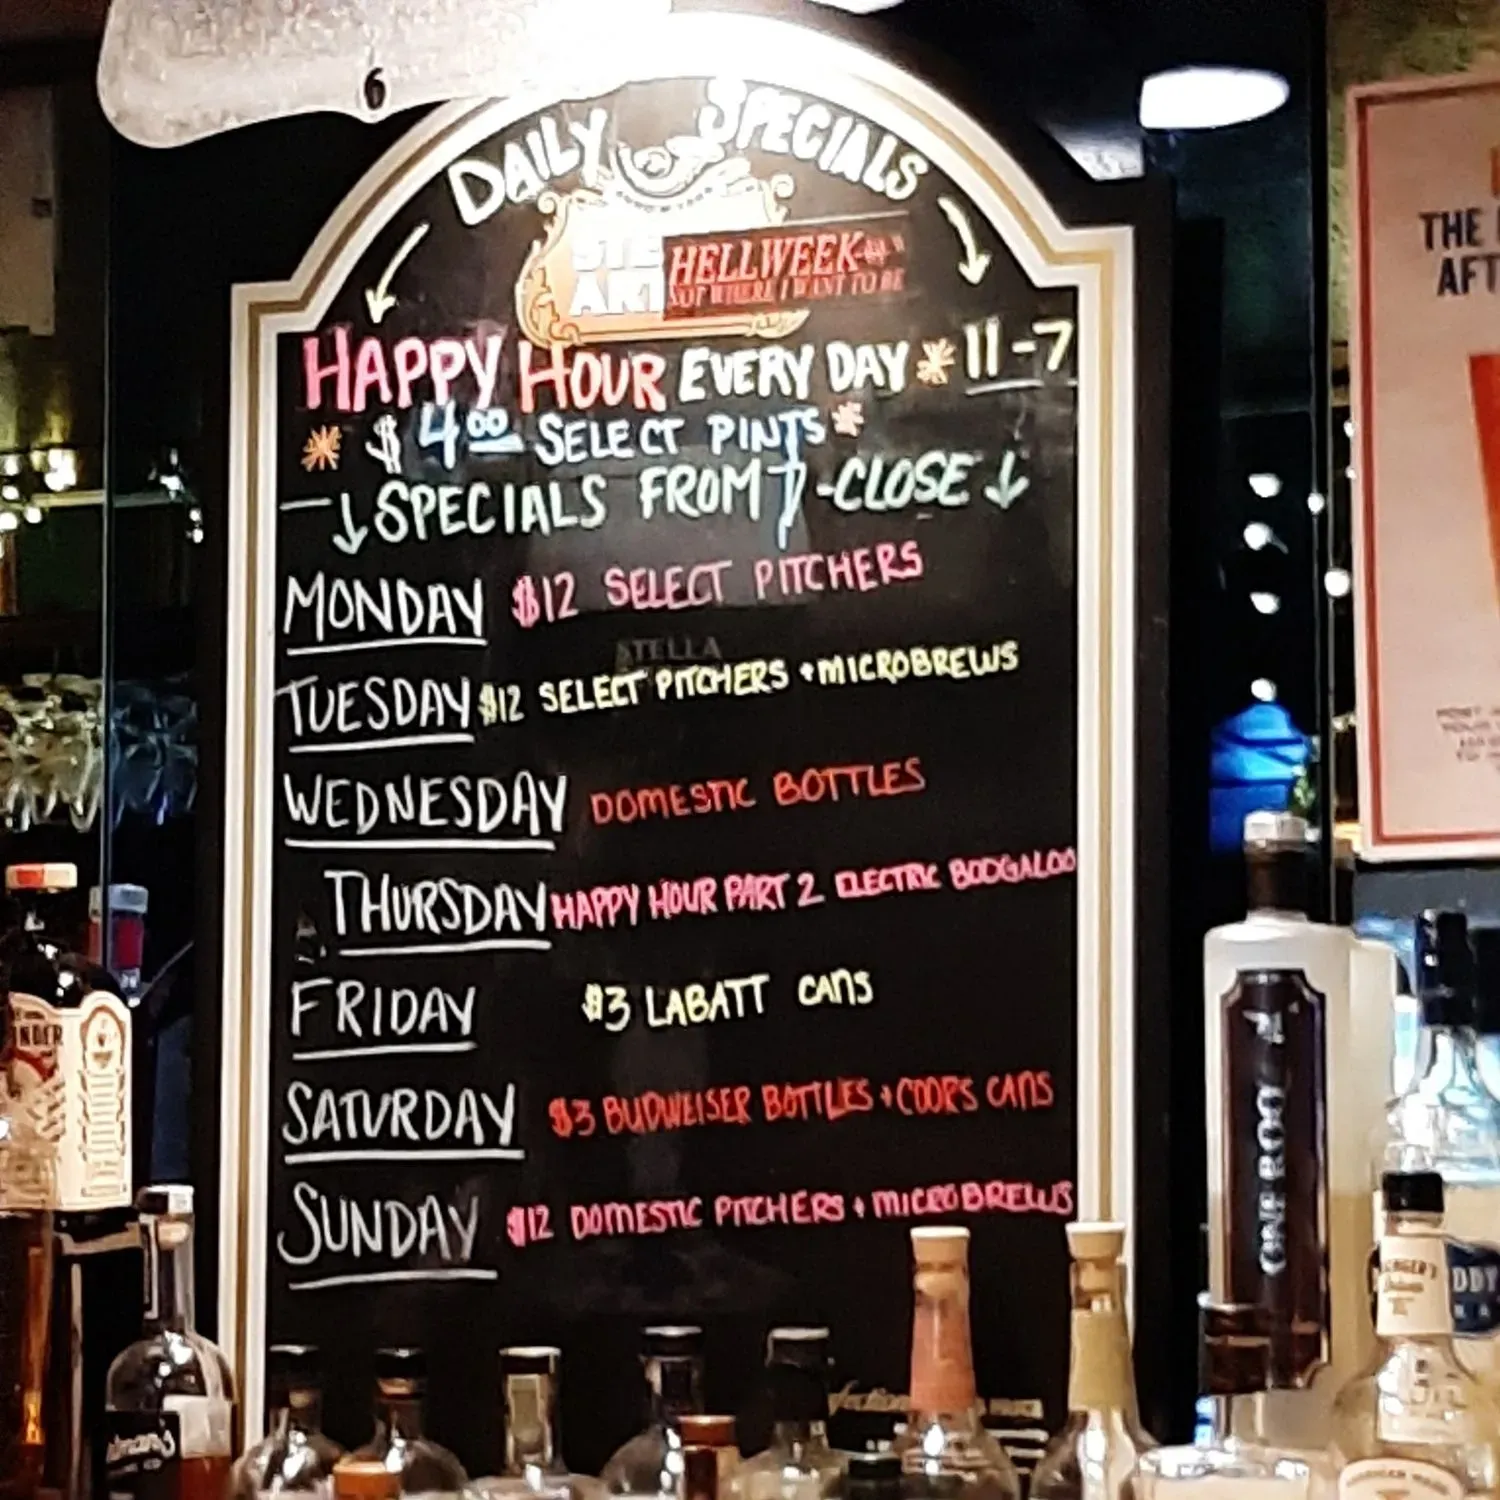 6
DAILY SPECIALS
HELLWEEK
NOT WHERE I WANT TO BE
HAPPY HOUR EVERY DAY * 11-7
* $4.00 SELECT PINTS *
↓ SPECIALS FROM 7-CLOSE ↓
MONDAY $12 SELECT PITCHERS
STELLA
TUESDAY $12 SELECT PITCHERS + MICROBREWS
WEDNESDAY DOMESTIC BOTTLES
THURSDAY HAPPY HOUR PART 2 ELECTRIC BOOGALOO
FRIDAY $3 LABATT CANS
SATURDAY $3 BUDWEISER BOTTLES + COORS CANS
SUNDAY $12 DOMESTIC PITCHERS + MICROBREWS
THE
AFT
ONE ROQ